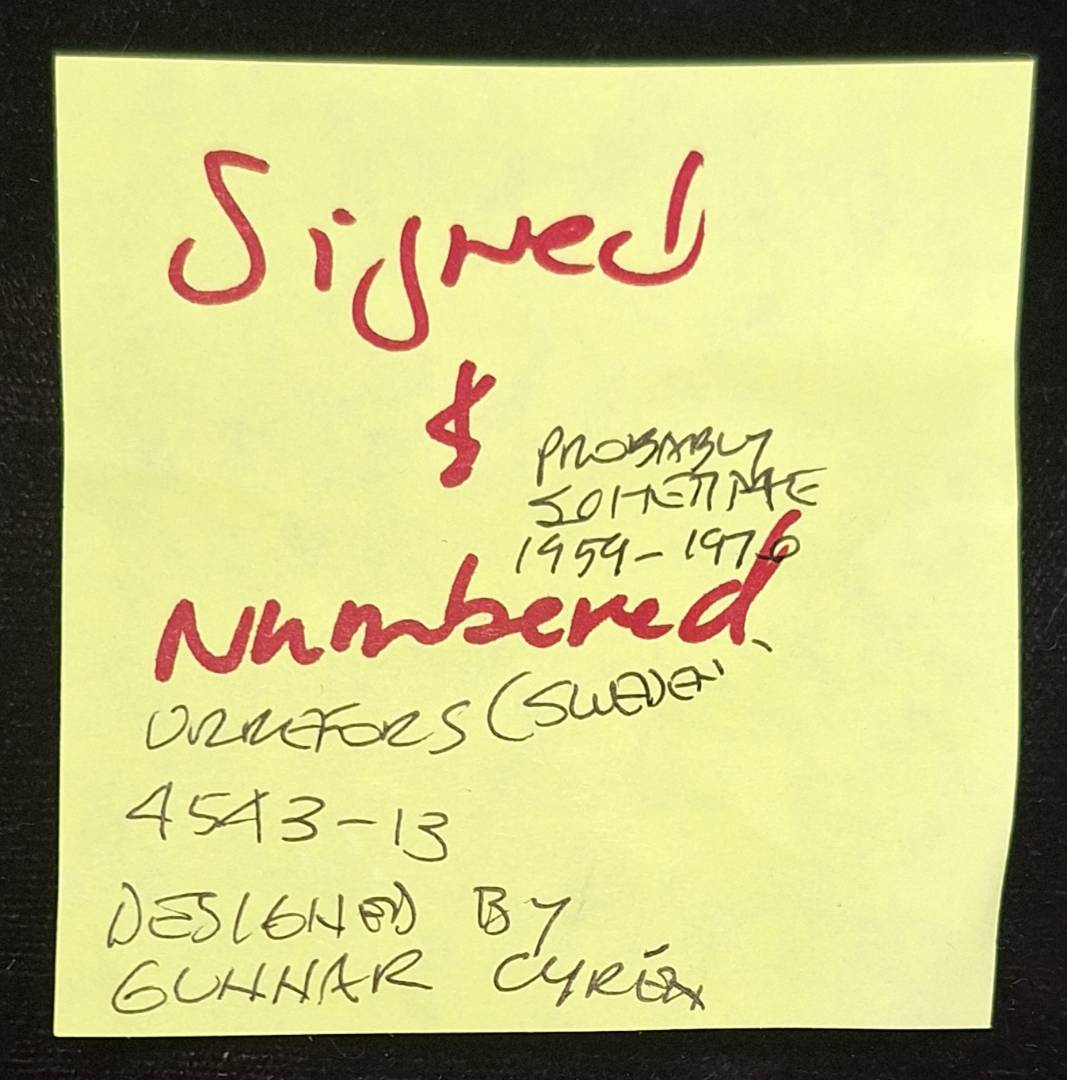 Signed
&
PROBABLY
SOMETIME
1959-1976
Numbered
ORREFORS (SWEDEN)
4543-13
DESIGNED BY
GUNNAR CYRÉN